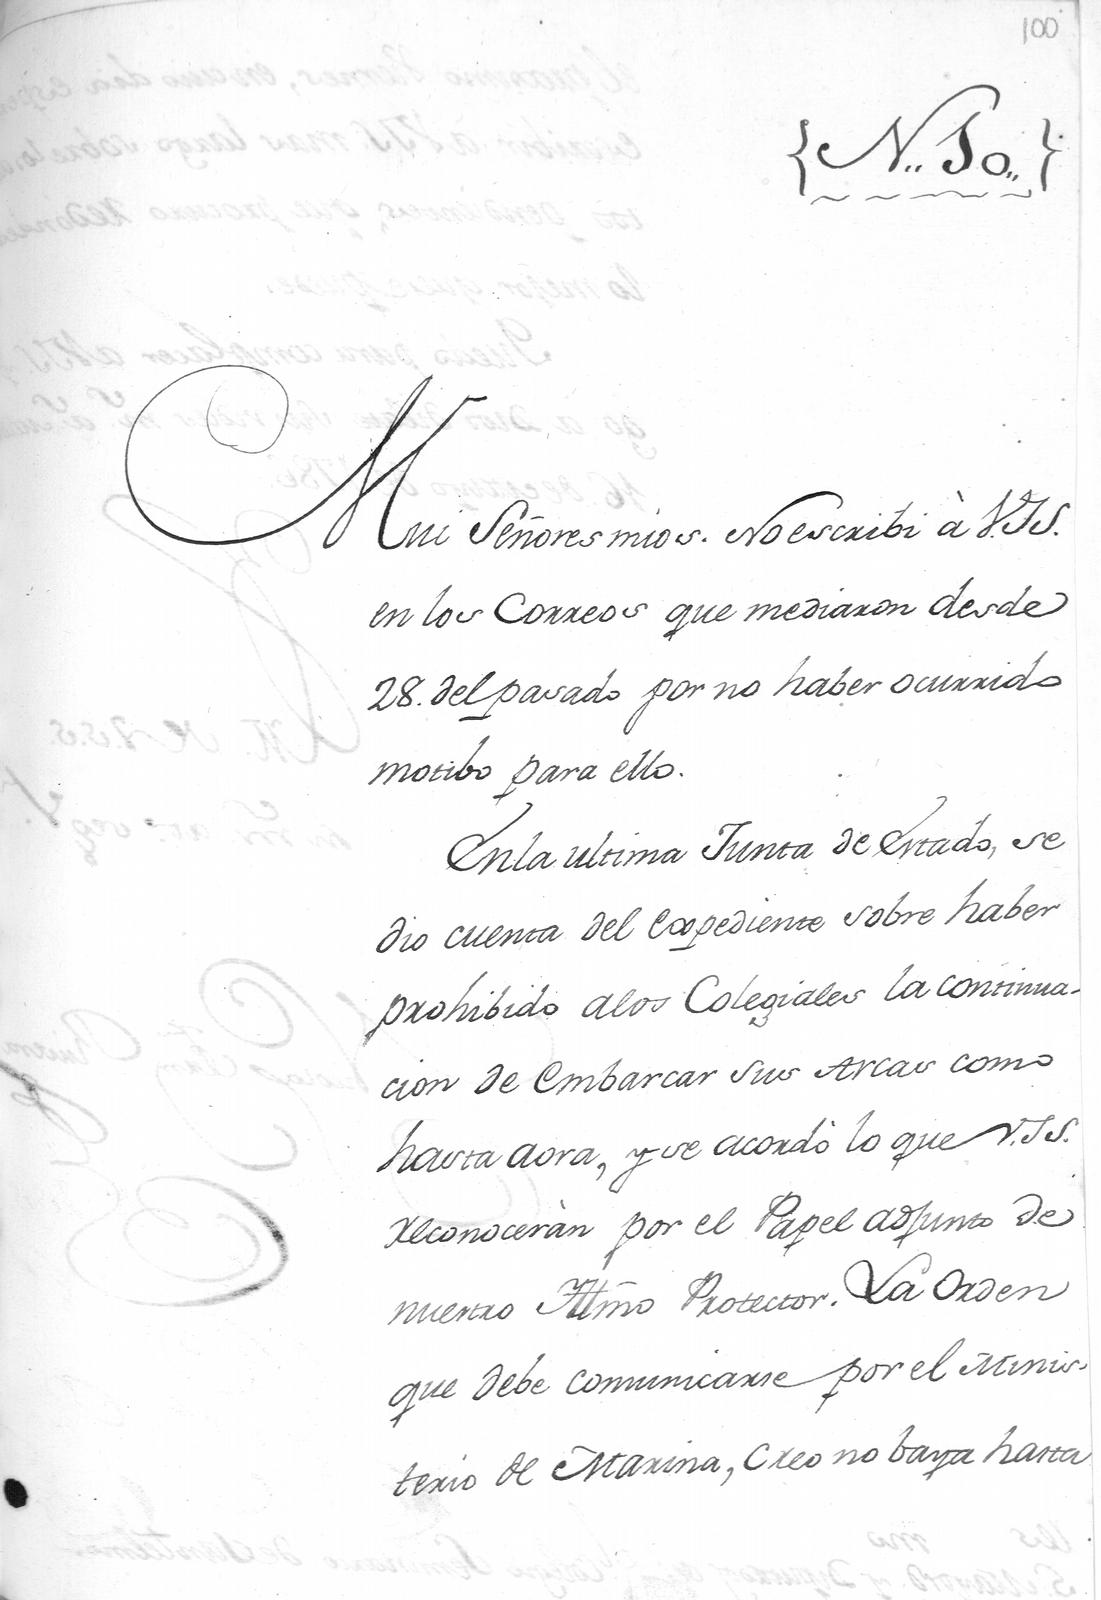 100
{N.. 50..}
Mui Señores mios. No escribi à V.SS.
en los Correos que mediaron desde
28. del pasado por no haber ocurrido
motibo para ello.
En la ultima Junta de Estado, se
dio cuenta del Expediente sobre haber
prohibido a los Colegiales la continua-
cion de Embarcar sus Arcas como
hasta aora, y se acordò lo que V.SS.
reconoceràn por el Papel adjunto de
nuestro Illmo Protector. La Orden
que debe comunicarse por el Minis-
terio de Marina, creo no baya hasta